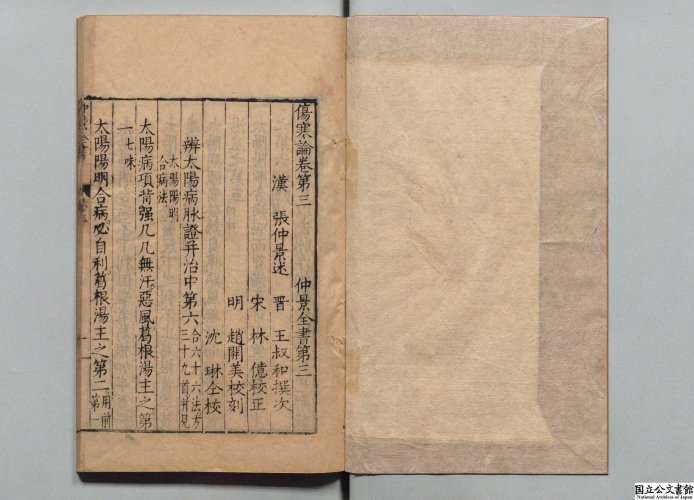 傷寒論卷第三　仲景全書第三
漢　張仲景述　晉　王叔和撰次
宋　林　億校正
明　趙開美校刻
沈　琳仝校
辨太陽病脉證并治中第六合六十六法方
三十九首并見
太陽陽明
合病法
太陽病項背强几几無汗惡風葛根湯主之第
一七味
太陽陽明合病必自利葛根湯主之第二用前
第一
仲景全書
国立公文書館
National Archives of Japan